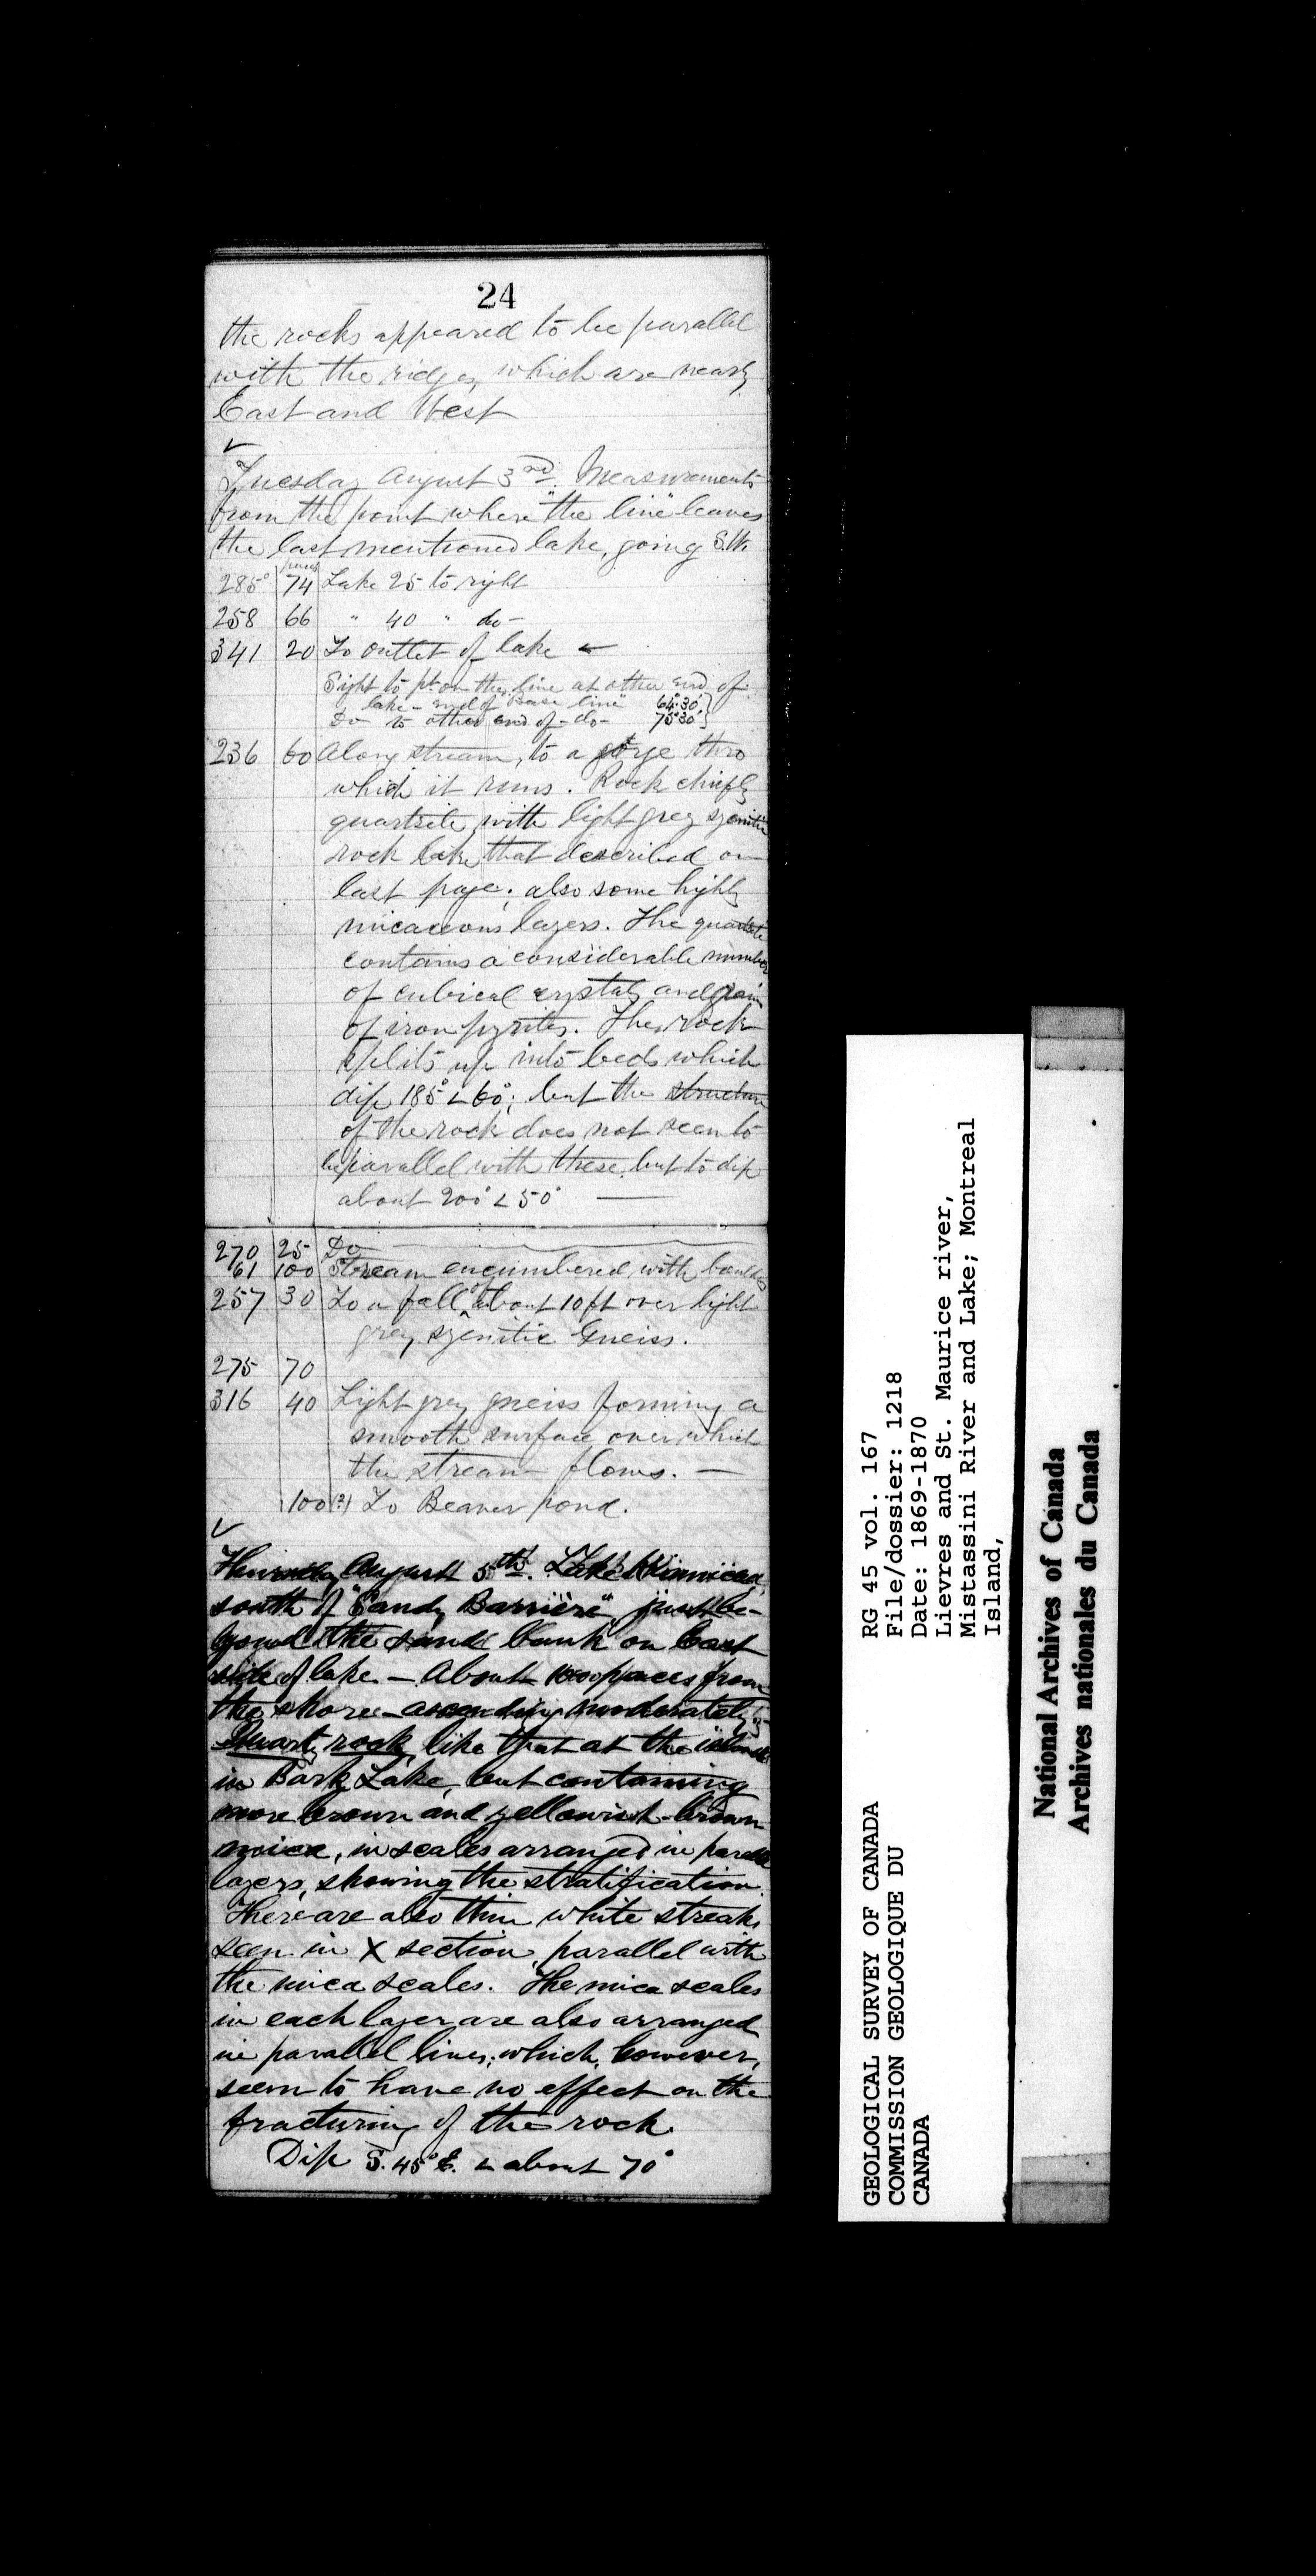 24
the rocks appeared to be parallel
with the ridges, which are nearly
East and West
✓
Tuesday August 3rd. Measurements
from the point where "the line" leaves
the last mentioned lake, going S.W.
paces
285° 74 Lake 25 to right
258 66 " 40 " do-
341 20 To outlet of lake
Sight to pt. on the line at other end of
lake - end of "Base line" 64°30'}
Do to other end of - do- 75°30'}
236 60 Along stream, to a gorge thro
which it runs. Rock chiefly
quartzite, with light grey syenitic
rock like that described on
last page; also some highly
micaceous layers. The quartzite
contains a considerable number
of cubical crystals and grains
of iron pyrites. The rock
splits up into beds which
dip 185° ∠ 60°; but the structure
of the rock does not seem to
be parallel with these, but to dip
about 200° ∠ 50° —
270 25 Do
261 100 Stream encumbered with boulders
257 30 To a fall of about 10 ft over light
grey syenitic Gneiss.
275 70
316 40 Light grey gneiss forming a
smooth surface over which
the stream flows. —
100(?) To Beaver pond.
✓
Thursday August 5th. Lake
south of "Sandy Barrière", just be-
yond the sand bank on East
side of lake - About 1000 paces from
the shore - ascending moderately;-
Quartz rock, like that at the islands
in Bark Lake, but containing
more brown and yellowish-brown
mica, in scales arranged in parallel
layers, showing the stratification.
There are also thin white streaks
seen in X section, parallel with
the mica scales. The mica scales
in each layer are also arranged
in parallel lines; which, however,
seem to have no effect on the
fracturing of the rock.
Dip S. 45° E. ∠ about 70°
RG 45 vol. 167
File/dossier: 1218
Date: 1869-1870
Lievres and St. Maurice river,
Mistassini River and Lake; Montreal
Island,
GEOLOGICAL SURVEY OF CANADA
COMMISSION GEOLOGIQUE DU
CANADA
National Archives of Canada
Archives nationales du Canada